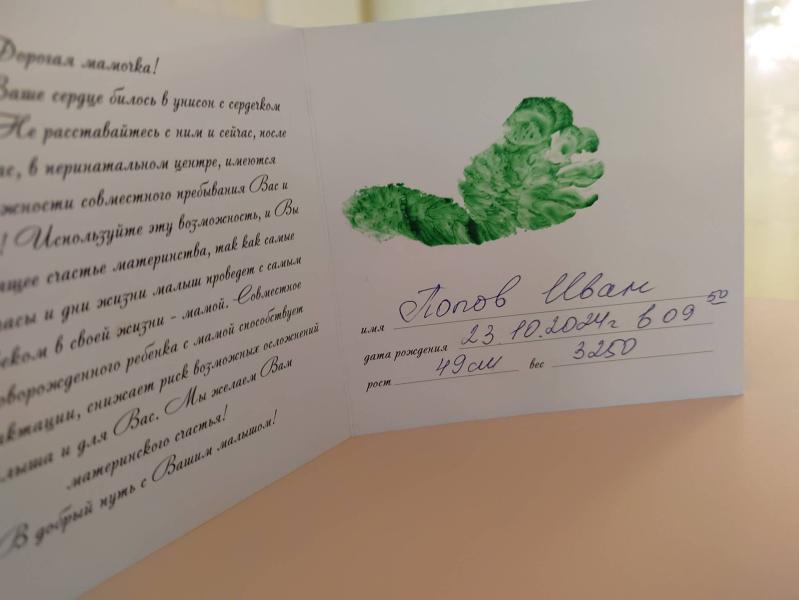 Дорогая мамочка!
Ваше сердце билось в унисон с сердечком
Не расставайтесь с ним и сейчас, после
в перинатальном центре, имеются
совместного пребывания Вас и
! Используйте эту возможность, и Вы
счастье материнства, так как самые
и дни жизни малыш проведет с самым
в своей жизни - мамой. Совместное
ребенка с мамой способствует
снижает риск возможных осложнений
и для Вас. Мы желаем Вам
материнского счастья!
В добрый путь с Вашим малышом!
имя Попов Иван
дата рождения 23.10.2024г в 09 50
рост 49см вес 3250